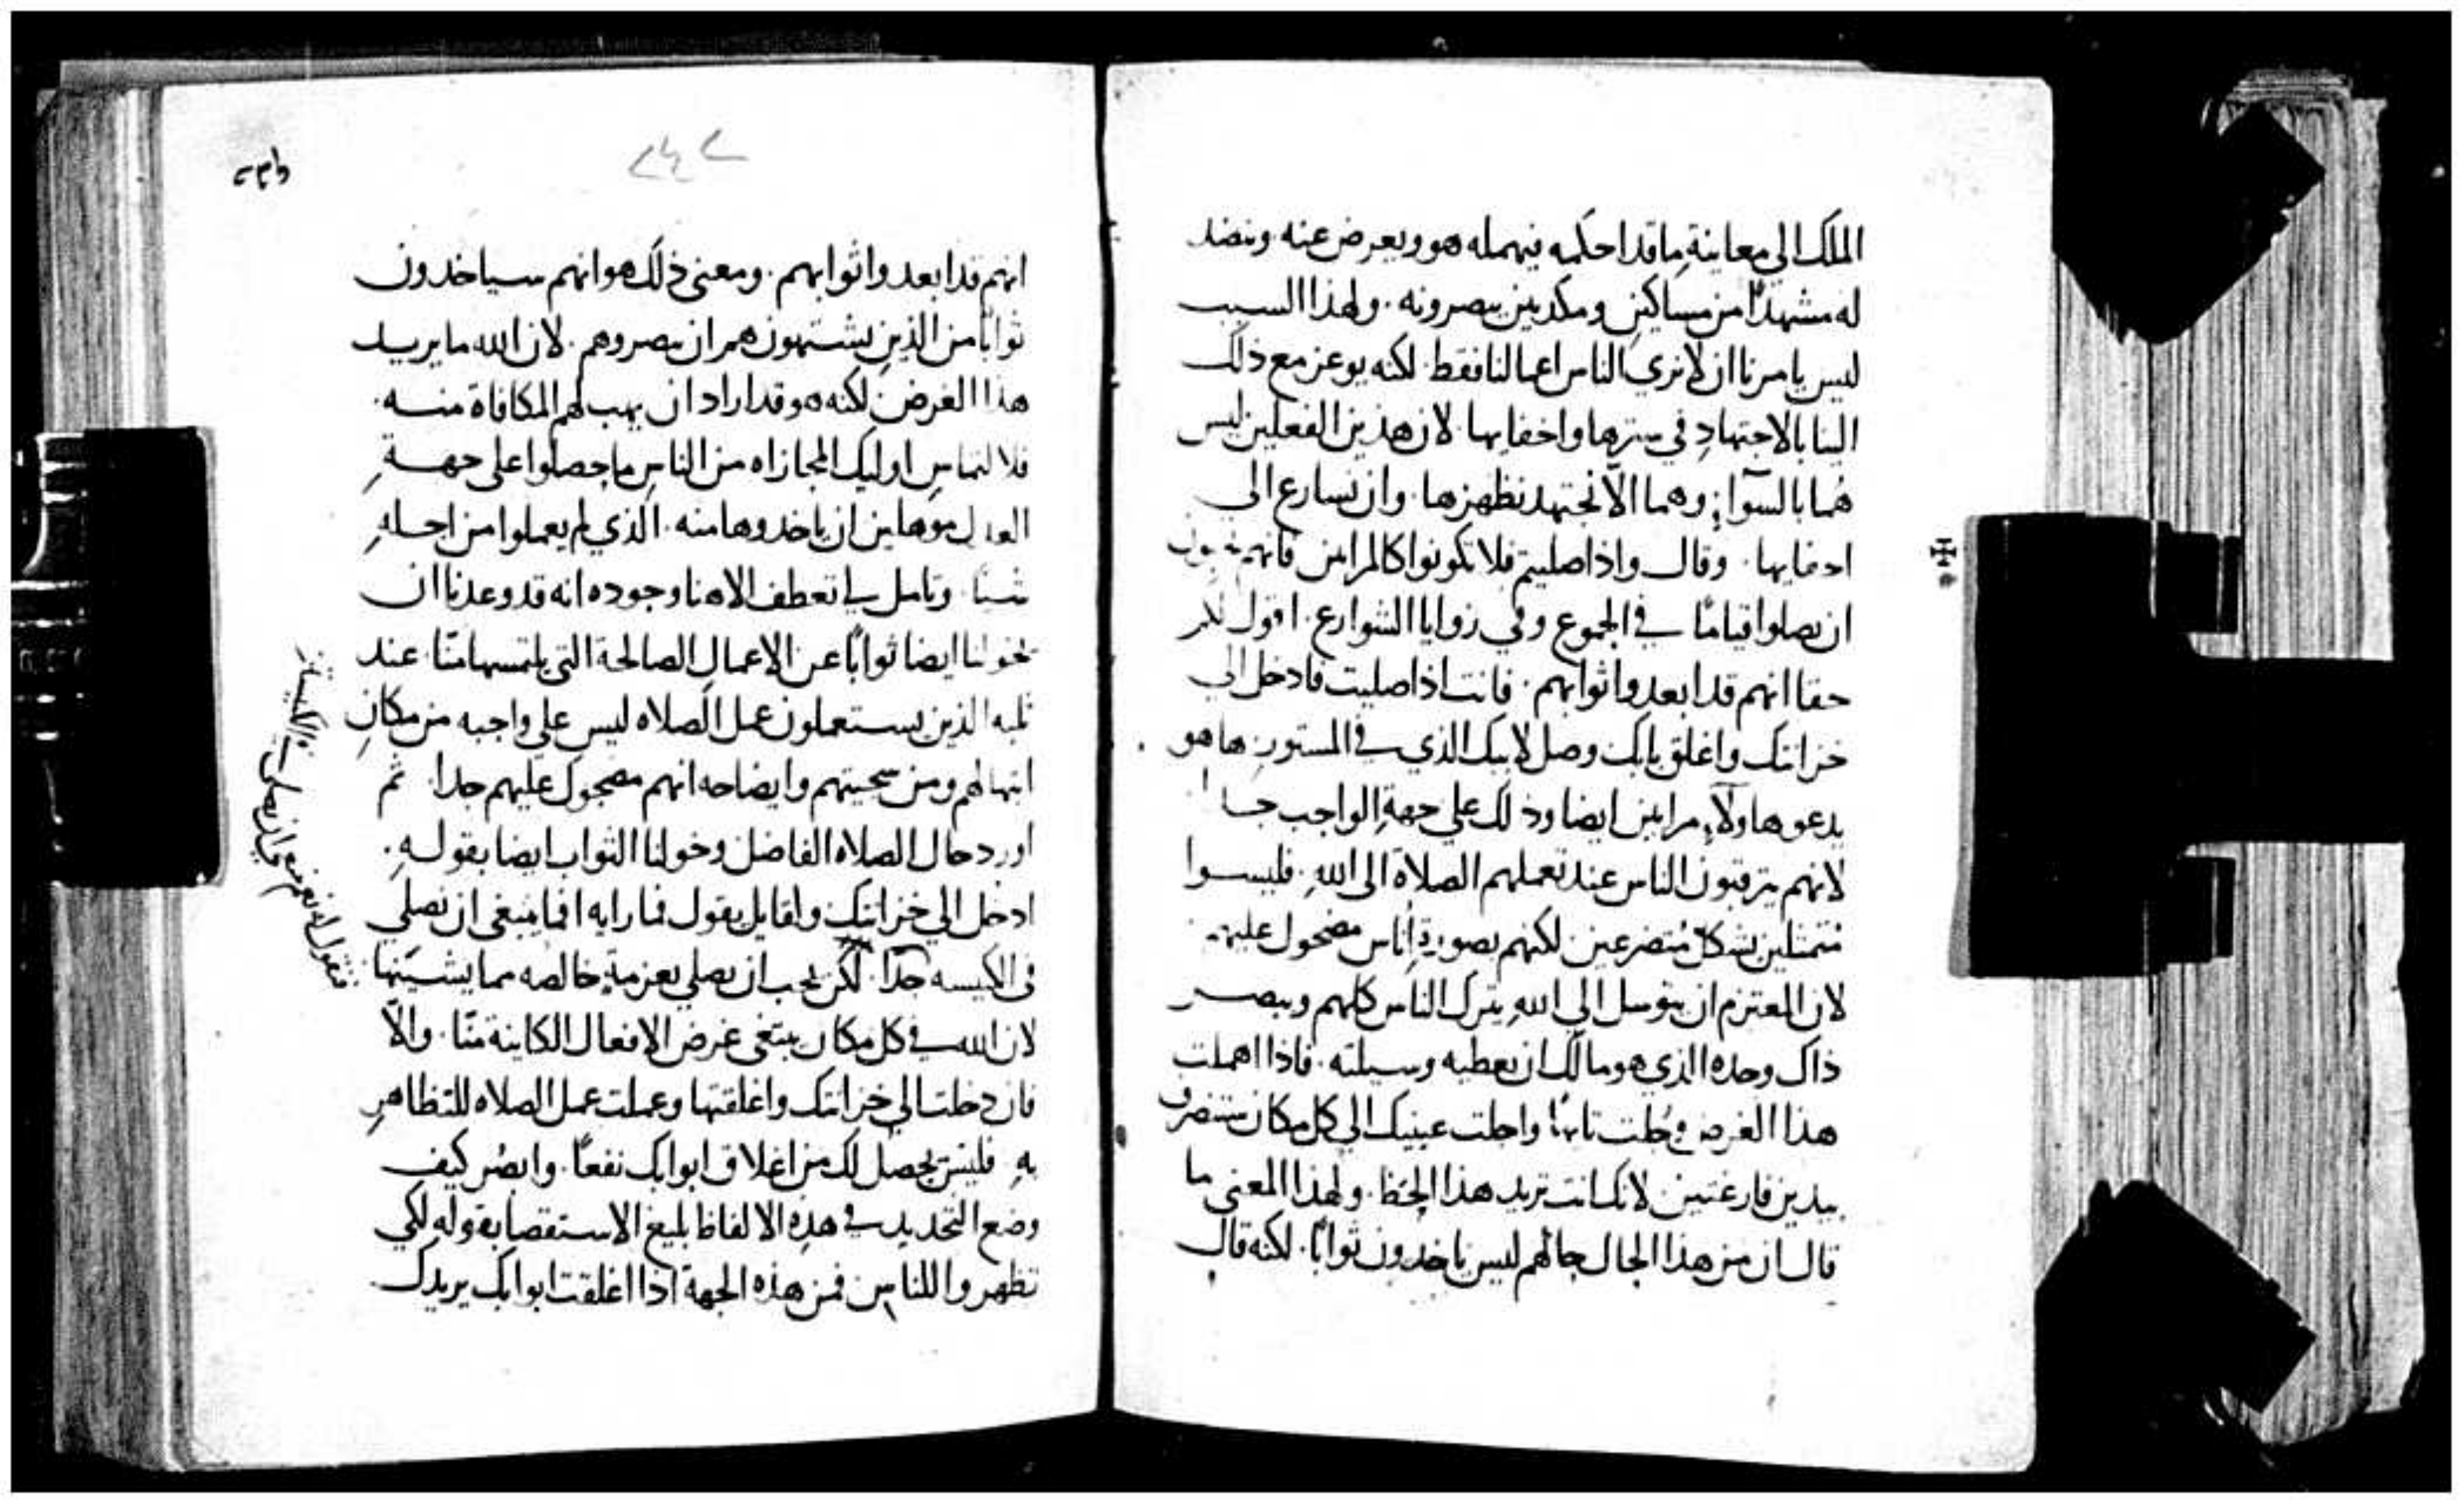 الملك الي معاينةِ ماقد احكمه فيهمله هو ويعرض عنه وينضد
له مشهدًا من مساكين ومكدين يبصرونه . ولهذا السبب
ليس يامرنا ان لا نري الناس اعمالنا فقط . لكنه يوعز مع ذلك
الينا بالاجتهادِ في سترها واخفايها . لان هذين الفعلين ليس
هما بالسوآءِ وهما الّا نجتهد نظهرها . وان نسارع الي
اخفايها . وقال واذا صليتم فلا تكونوا كالمرايين فانهم يحبون
ان يصلوا قيامًا في الجموع وفي زوايا الشوارع . اقول لكم
حقا انهم قد ابعدوا ثوابهم . فانت اذا صليت فادخل الي
خزانتك واغلق بابك وصل لابيك الذي في المستور . ها هو
يدعو هاولآءِ مرايين ايضا وذلك علي جهةِ الواجب جدا
لانهم يترقبون الناس عند تعملهم الصلاة الى اللهِ . فليسوا
متمثلين بشكل متضرعين لكنهم بصورةِ اناس مضحوك عليهم
لان المعتزم ان يتوسل الي اللهِ يترك الناس كلهم ويبصر
ذاك وحده الذي هو مالك ان يعطيه وسيلته . فاذا اهملت
هذا الغرض وجلت تايهًا واجلت عينيك الي كل مكان ستنصرف
بيدين فارغتين لانك انت تريد هذا الحظ . ولهذا المعنى ما
قال ان من هذا الحال حالهم ليس ياخدون ثوابًا . لكنه قال
٢٤٢
انهم قد ابعدوا ثوابهم . ومعنى ذلك هو انهم سياخدون
ثوابًا من الذين يشتهون هم ان يبصروهم . لان الله ما يريد
هذا الغرض لكنه هو قد اراد ان يهب لهم المكافاة منه .
فلالتماس اوليك المجازاه من الناس ما حصلوا على جهةِ
العدل موهلين ان ياخدوها منه . الذي لم يعملوا من اجلهِ
شيئا . وتامل لي تعطف الاهنا وجوده انه قد وعدنا ان
يخولنا ايضا ثوابًا عن الاعمال الصالحة التي يلتمسها منّا . عند
ثلبه الذين يستعملون عمل الصلاه ليس علي واجبه من مكانِ
ابتهالهم ومن سجيتهم وايضاحه انهم مضحوك عليهم جدا . ثم
اورد حال الصلاه الفاضل وخولنا الثواب ايضا بقولهِ .
ادخل الي خزانتك ولقايل يقول فما رايه افما ينبغي ان نصلي
فى الكيسه جدًا . لكن يجب ان يصلي بعزمةٍ خالصه مما يشينها
فنقول له نعم ينبغي ان نصلى في الكنيسة
لان الله في كل مكان يبتغي غرض الافعال الكاينة منّا . والّا
فان دخلت الي خزانتك واغلقتها وعملت عمل الصلاه للتظاهرِ
بهِ فليس يحصل لك من اغلاق ابوابك نفعًا . وابصر كيف
وضع التحديد في هذهِ الالفاظ بليغ الاستقصا بقولهِ لكي
تظهروا للناس فمن هذه الجهة اذا اغلقت ابوابك يريدك